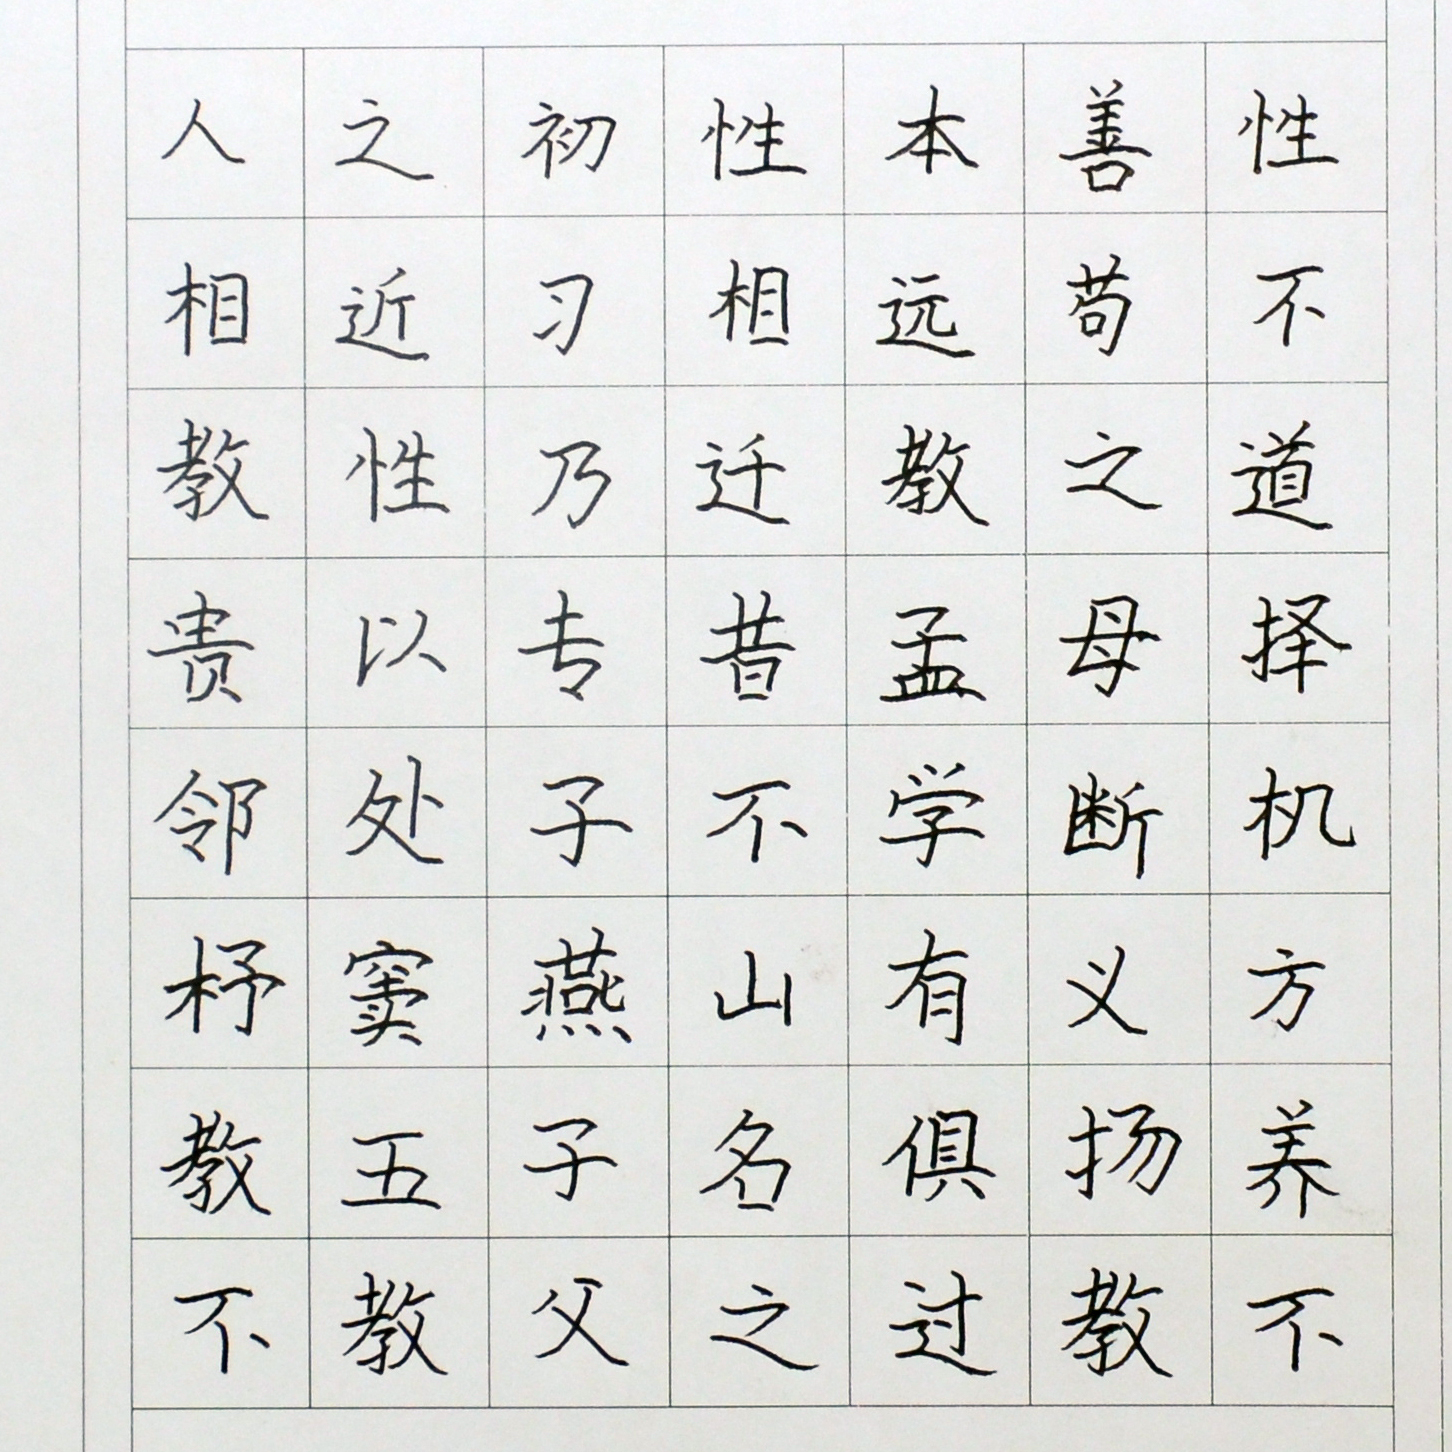 人之初性本善性
相近习相远苟不
教性乃迁教之道
贵以专昔孟母择
邻处子不学断机
杼窦燕山有义方
教五子名俱扬养
不教父之过教不